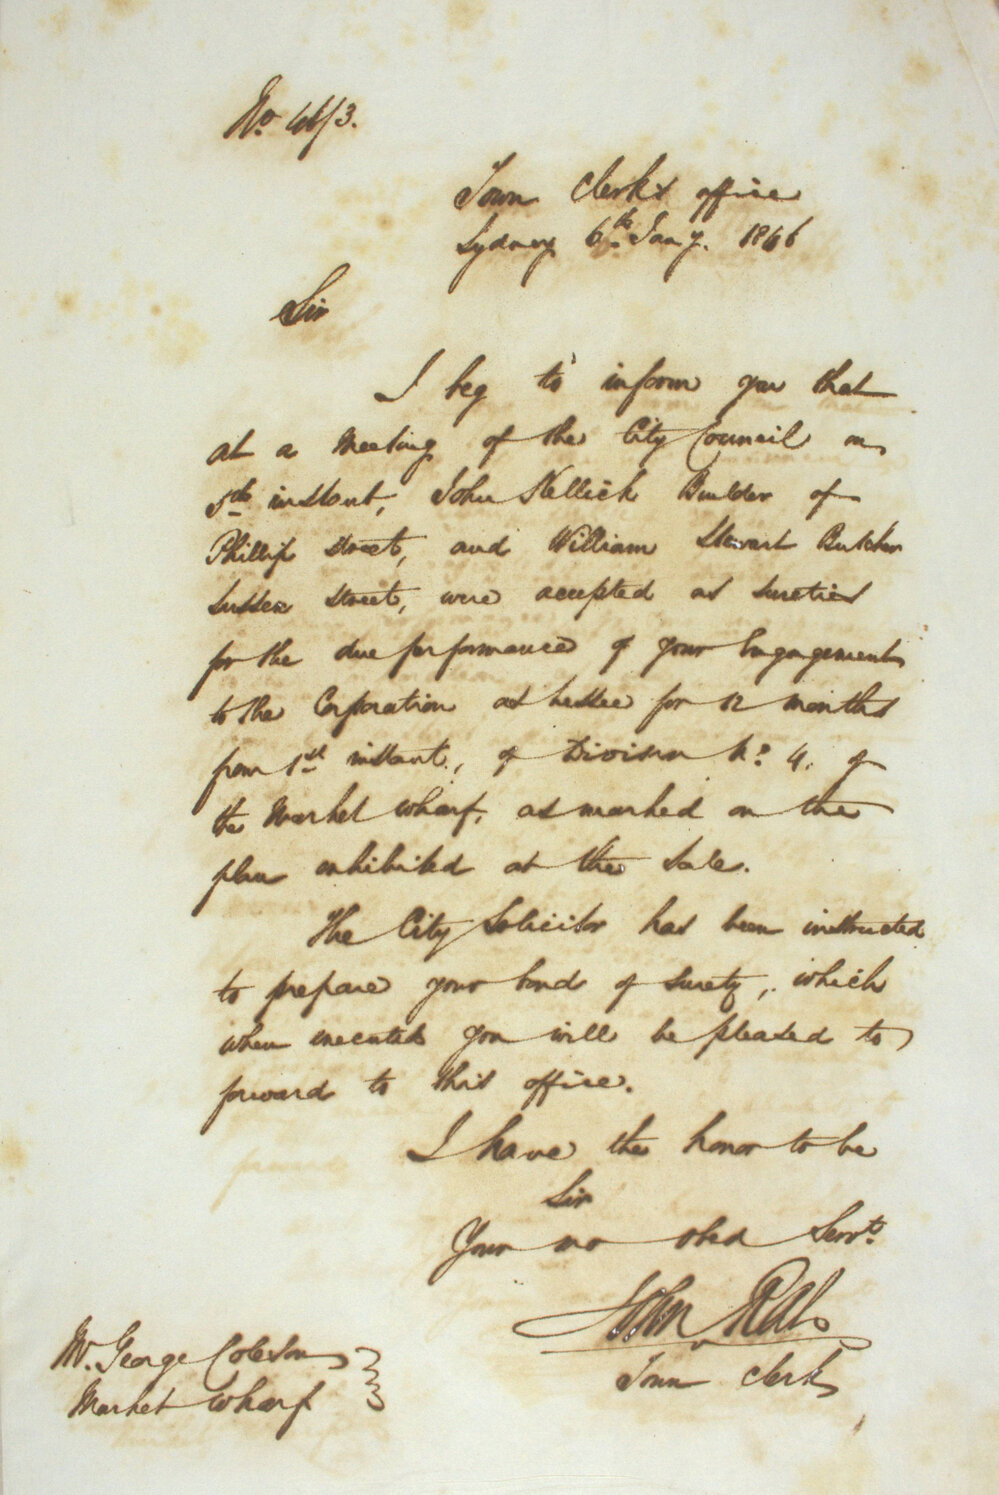 No. 46/3.
Town Clerk's office
Sydney 6th Jany. 1846
Sir
I beg to inform you that
at a Meeting of the City Council on
5th instant, John Hellick Builder of
Phillip Street, and William Stewart Butcher
Sussex Street, were accepted as sureties
for the due performance of your Engagements
to the Corporation as Lessee for 12 months
from 1st instant, of Division No. 4. of
the Market Wharf, as marked on the
plan exhibited at the Sale.
The City Solicitor has been instructed
to prepare your bond of surety, which
when executed you will be pleased to
forward to this office.
I have the honor to be
Sir
Your mo obed Servt.
John
Town Clerk
Mr. George Coleson
Market Wharf